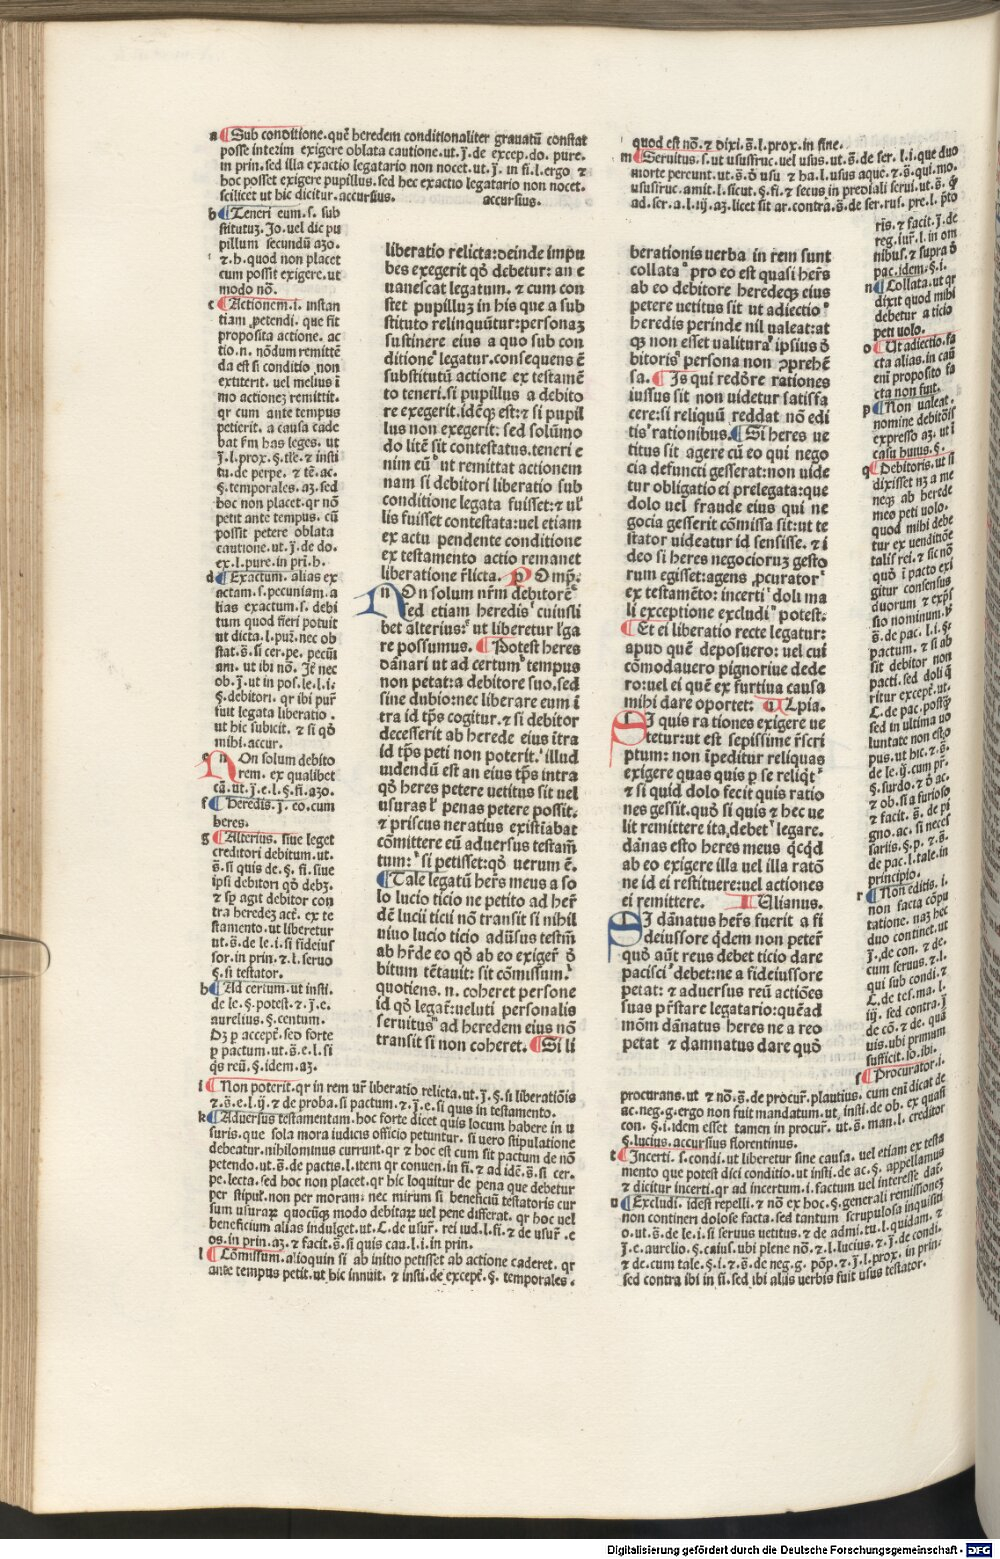 a ¶Sub conditione.quē heredem conditionaliter grauatū constat
posse interim exigere oblata cautione.ut.j.de excep.do. pure.
in prin.sed illa exactio legatario non nocet.ut.j. in fi.l.ergo ⁊
hoc posset exigere pupillus.sed hec exactio legatario non nocet.
scilicet ut hic dicitur.accursius. accursius.
b ¶Teneri eum.s. sub
stitutuʒ.Jo.uel dic pu
pillum secundū aʒo.
⁊.h.quod non placet
cum possit exigere.ut
modo nō.
c ¶Actionem.i. instan
tiam petendi. que fit
proposita actione. ac
tio.n. nōdum remittē
da est si conditio non
extiterit. uel melius ī
mo actioneʒ remittit.
qr cum ante tempus
petierit. a causa cade
bat fm has leges. ut
j.l.prox.§.tīse.⁊ insti
tu.de perpe. ⁊ tē.ac.
§.temporales.aʒ.sed
hoc non placet.qr nō
petit ante tempus. cū
possit petere oblata
cautione.ut.j.de do.
ex.l.pure.in pri.h.
d ¶Exactum. alias ex
actam.s.pecuniam.a
lias exactum.s. debi
tum quod fieri potuit
ut dicta.l.pur.nec ob
stat.s̄.si cer.pe. pecuī
am. ut ibi nō. Jt nec
ob.j.ut in pos.le.l.i.
§.debitori. qr ibi pur
fuit legata liberatio.
ut hic subicit. ⁊ si qō
mihi.accur.
e NOn solum debito
rem. ex qualibet
cā.ut.j.e.l.§.fi.aʒo.
f ¶Heredis.j. eo.cum
heres.
g ¶Alterius. siue leget
creditori debitum.ut.
s̄.si quis de.§.fi.siue
ipsi debitori qō debʒ.
⁊ sp agit debitor con
tra heredeʒ act. ex te
stamento.ut liberetur
ut.s̄.de le.i.si fideius
sor.in prin.⁊.l.seruo
§.si testator.
h ¶Ad certum.ut insti.
de le.§.potest.⁊.j.e.
aurelius.§.centum.
Dʒ p accept.sed forte
p pactum.ut.s̄.e.l.si
qs reū.§.idem.aʒ.
i ¶Non poterit.qr in rem ur liberatio relicta.ut.j.§.si liberatiōis
⁊.s̄.e.l.ij.⁊ de proba.si pactum.⁊.j.e.si quis in testamento.
k ¶Aduersus testamentam.hoc forte dicet quis locum habere in u
suris.que sola mora iudicis officio petuntur.si uero stipulatione
debeatur.nihilominus currunt.qr ⁊ hoc est cum sit pactum de nō
petendo.ut.s̄.de pactis.l.item qr conuen.in fi.⁊ ad idē.s̄.si cer.
pe.lecta.sed hoc non placet.qr hic loquitur de pena que debetur
per stipul. non per moram: nec mirum si beneficiū testatoris cur
sum usuraʒ quocūqʒ modo debitaʒ uel pene differat. qr hoc uel
beneficium alias indulget.ut.C.de usur. rei iud.l.fi.⁊ de usur.e
os.in prin.aʒ.⁊ facit.s̄.si quis cau.l.i.in prin.
l ¶Cōmissum.alioquin si ab initio petisset ab actione caderet.qr
ante tempus petit.ut hic innuit. ⁊ insti.de except.§. temporales.
liberatio relicta:deinde impu
bes exegerit qō debetur: an e
uanescat legatum. ⁊ cum con
stet pupillum in his que a sub
stituto relinquūtur:personaʒ
sustinere eius a quo sub con
ditione legatur.consequens ē
substitutū actione ex testamē
to teneri.si pupillus a debito
re exegerit.idēqʒ est:⁊ si pupil
lus non exegerit: sed solūmo
do litē sit contestatus.teneri e
nim eū ut remittat actionem
nam si debitori liberatio sub
conditione legata fuisset:⁊ ul
lis fuisset contestata:uel etiam
ex actu pendente conditione
ex testamento actio remanet
liberatione rlicta. POmp.
NOn solum nrm debitorē
sed etiam heredis cuiusli
bet alterius: ut liberetur lga
re possumus. ¶Potest heres
dānari ut ad certum tempus
non petat:a debitore suo.sed
sine dubio:nec liberare eum ī
tra id tps cogitur.⁊ si debitor
decesserit ab herede eius ītra
id tps peti non poterit. illud
uidendū est an eius tps intra
qō heres petere uetitus sit uel
usuras l penas petere possit.
⁊ priscus neratius existiabat
cōmittere eū aduersus testam
tum: si petisset:qō uerum ē.
¶Tale legatū hers meus a so
lo lucio ticio ne petito ad her
dē lucii ticii nō transit si nihil
uiuo lucio ticio aduersus testm
ab hrde eo qō ab eo exiger d
bitum tētauit: sit cōmissum.
quotiens.n. coheret persone
id qō legat:ueluti personalis
seruitus ad heredem eius nō
transit si non coheret. ¶Si li
berationis uerba in rem sunt
collata pro eo est quasi hers
ab eo debitore heredeqʒ eius
petere uetitus sit ut adiectio
heredis perinde nil ualeat:at
qʒ non esset ualitura ipsius d
bitoris persona non ꝯprehē
sa. ¶Js qui reddre rationes
iussus sit non uidetur satisfa
cere:si reliquū reddat nō edi
tis rationibus.¶Si heres ue
titus sit agere cū eo qui nego
cia defuncti gesserat:non uide
tur obligatio ei prelegata:que
dolo uel fraude eius qui ne
gocia gesserit cōmissa sit:ut te
stator uideatur id sensisse. ⁊ i
deo si heres negocioruʒ gesto
rum egisset:agens procurator
ex testamēto: incerti doli ma
li exceptione excludi potest.
¶Et ei liberatio recte legatur:
apud quē deposuero: uel cui
cōmodauero pignoriue dede
ro:uel ei quē ex furtiua causa
mihi dare oportet: ULpia.
SJ quis rationes exigere ue
tetur:ut est sepissime rscri
ptum: non īpeditur reliquas
exigere quas quis p se reliqt
⁊ si quid dolo fecit quis ratio
nes gessit.quō si quis ⁊ hec ue
lit remittere ita debet legare.
dānas esto heres meus qcqd
ab eo exigere illa uel illa ratō
ne id ei restituere:uel actiones
ei remittere. JUlianus.
SJ dānatus hers fuerit a fi
deiussore qdem non peter
quō aut reus debet ticio dare
pacisci debet:ne a fideiussore
petat: ⁊ aduersus reū actiōes
suas prstare legatario:quēad
mōm dānatus heres ne a reo
petat ⁊ damnatus dare quō
quod est nō.⁊ dixi.s̄.l.prox.in fine.
m ¶Seruitus.s.ut ususfruc.uel usus.ut.s̄.de ser.l.i.que duo
morte pereunt.ut.s̄.d usu ⁊ ha.l.usus aque.⁊.s̄.qui.mo.
ususfruc.amit.l.sicut.§.fi.⁊ secus in prediali serui.ut.s̄.q
ad.ser.a.l.iij.aʒ.licet sit ar.contra.s̄.de ser.rus. pre.l. pto
ris.⁊ facit.j.de
reg.iur.l.in om
nibus.⁊ supra d
pac.idem.§.i.
n ¶Collata.ut qr
dixit quod mihi
debetur a ticio
peti uolo.
o ¶Ut adiectio.fa
cta alias.in cau
eni proposito fa
cta non fuit.
p ¶Non ualeat.
nomine debitoris
expresso aʒ. ut i
casu huius.§.
q ¶Debitoris.ut si
dixisset nʒ a me
neqʒ ab herede
meo peti uolo.
quod mihi debe
tur ex uenditiōe
talis rei.⁊ sic nō
quō ī pacto exi
gitur consensus
duorum ⁊ exps
sio nominum.ut
s̄.de pac.l.i.§.
pactum.⁊ si ab
sit debitor non
pacti.sed doli q
ritur except.ut.
C.de pac.postqʒ
sed in ultima uo
luntate non est o
pus.ut hic.⁊.s̄.
de le.ij.cum pr.
§.surdo.⁊ d ac.
⁊ ob.si a furioso
⁊ facit.s̄.de pi
gno.ac.si neces
sariis.§.p.⁊.s̄.
de pac.l.tale.in
principio.
r ¶Non editis.i.
non facta cōpu
tatione. naʒ hec
duo continet.ut
j.de con.⁊ de.
cum seruus.⁊.l.
qui sub condi.⁊
C.de tes.ma.l.
iij. sed contra.j
de cō.⁊ de. quā
uis.ubi primum
sufficit.so.ibi.
s ¶Procurator.i.
procurans.ut ⁊ nō.s̄.de procur.plautius.cum eni dicat de
ac.neg.g.ergo non fuit mandatum.ut insti.de ob.ex quasi
con.§.i.idem esset tamen in procur.ut.s̄.man.l.creditor
§.lucius.accursius florentinus.
t ¶Incerti.s.condi.ut liberetur sine causa. uel etiam ex testa
mento que potest dici conditio.ut insti.de ac.§. appellamus
⁊ dicitur incerti.qr ad incertum.i.factum uel interesse dat.
u ¶Excludi. idest repelli.⁊ nō ex hoc.§.generali remissionē
non contineri dolose facta.sed tantum scrupulosa inquisiti
o.ut.s̄.de le.i.si seruus uetitus.⁊ de admi.tu.l.quidam.⁊
j.e.aurelio.§.caius.ubi plene nō.⁊.l.lucius.⁊.j.de condi.
⁊ de.cum tale.§.i.⁊.s̄.de neg.g. pōp.⁊.j.l.prox.in prin.
sed contra ibi in fi.sed ibi aliis uerbis fuit usus testator.
Digitalisierung gefördert durch die Deutsche Forschungsgemeinschaft - DFG